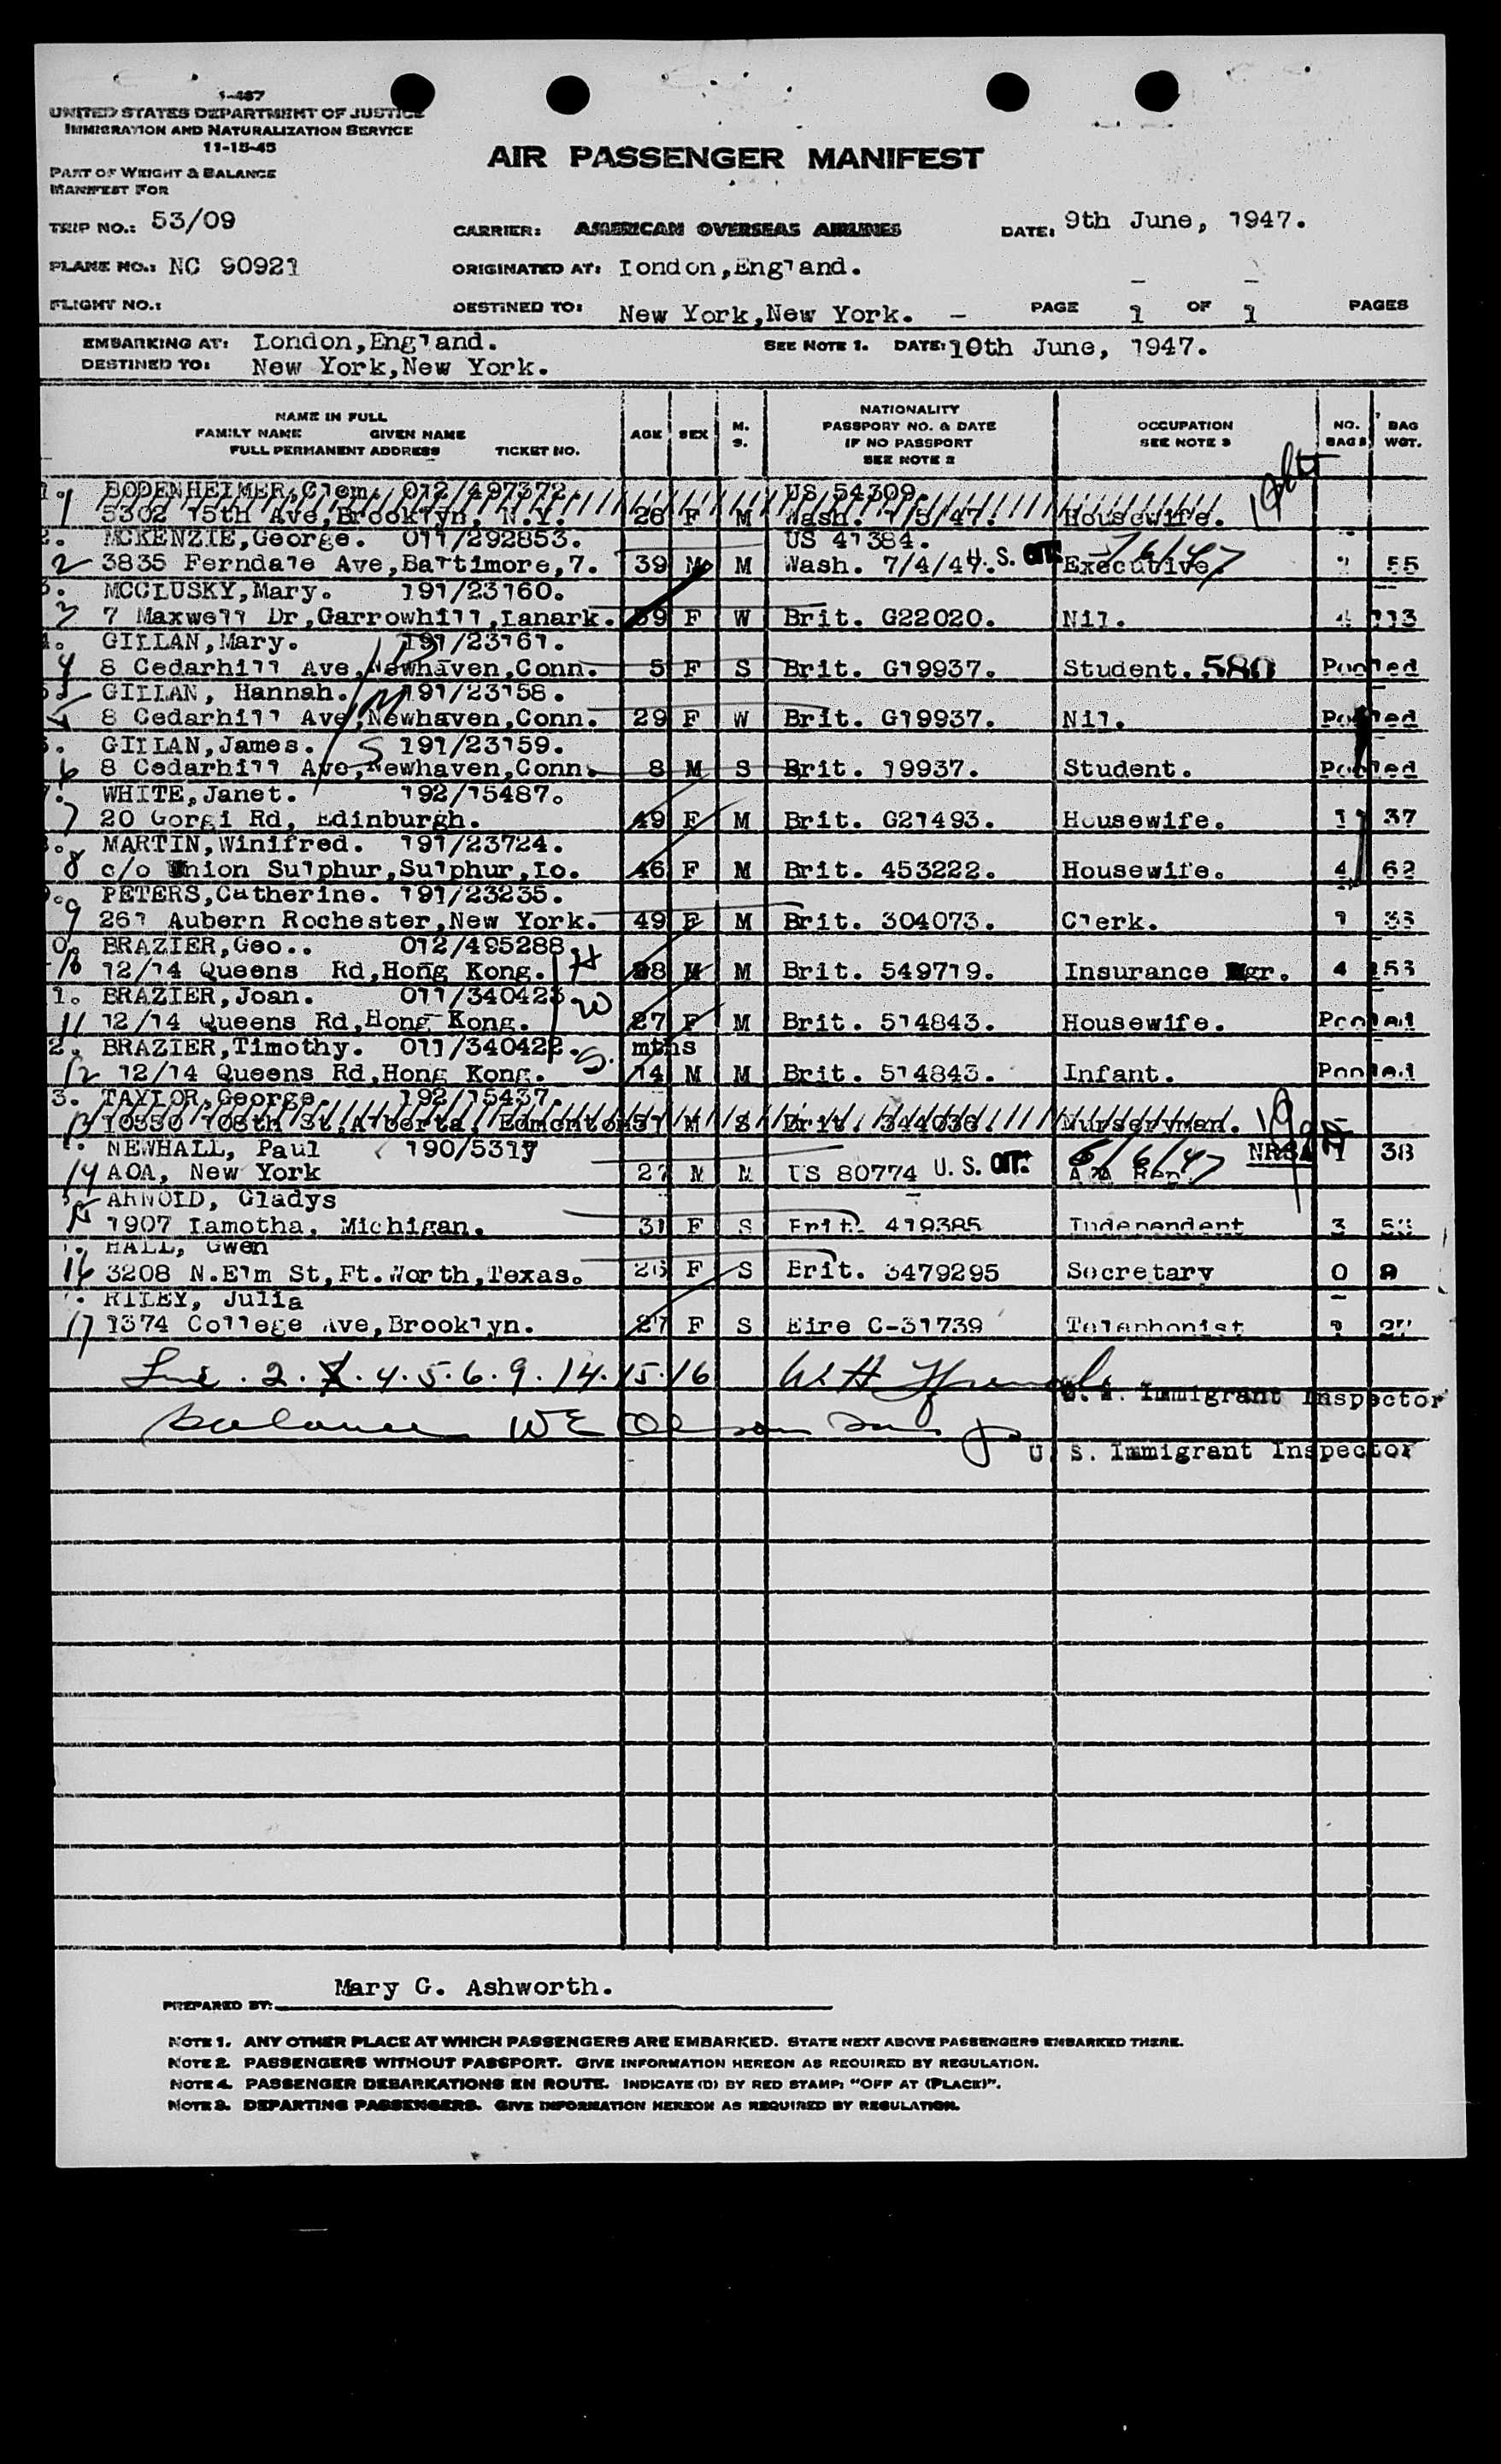 1-467
UNITED STATES DEPARTMENT OF JUSTICE
IMMIGRATION AND NATURALIZATION SERVICE
11-15-45
PART OF WEIGHT & BALANCE
MANIFEST FOR
AIR PASSENGER MANIFEST
TRIP NO.: 53/09 CARRIER: AMERICAN OVERSEAS AIRLINES DATE: 9th June, 1947.
PLANE NO.: NC 90921 ORIGINATED AT: London,England.
FLIGHT NO.: DESTINED TO: New York,New York. - PAGE 1 OF 1 PAGES
EMBARKING AT: London,England. SEE NOTE 1. DATE: 10th June, 1947.
DESTINED TO: New York,New York.
NAME IN FULL
FAMILY NAME GIVEN NAME
FULL PERMANENT ADDRESS TICKET NO.
AGE SEX M. S.
NATIONALITY
PASSPORT NO. & DATE
IF NO PASSPORT
SEE NOTE 2
OCCUPATION
SEE NOTE 3
NO. BAGS BAG WGT.
1. BODENHEIMER,Clem. 012/497372. US 54309.
1 5302 15th Ave,Brooklyn, N.Y. 26 F M Wash. 1/5/47. Housewife.
2. MCKENZIE,George. 011/292853. US 41384.
2 3835 Ferndale Ave,Baltimore,7. 39 M M Wash. 7/4/47. U.S. CIT. Executive. 55
3. MCCLUSKY,Mary. 191/23160.
3 7 Maxwell Dr,Garrowhill,Lanark. 59 F W Brit. G22020. Nil. 4 113
4. GILLAN,Mary. 191/23161.
4 8 Cedarhill Ave,Newhaven,Conn. 5 F S Brit. G19937. Student. 580 Pooled
5. GILLAN, Hannah. 191/23158.
5 8 Cedarhill Ave,Newhaven,Conn. 29 F W Brit. G19937. Nil. Pooled
6. GILLAN,James. S 191/23159.
6 8 Cedarhill Ave,Newhaven,Conn. 8 M S Brit. 19937. Student. Pooled
7. WHITE,Janet. 192/15487.
7 20 Gorgi Rd, Edinburgh. 49 F M Brit. G21493. Housewife. 1 37
8. MARTIN,Winifred. 191/23724.
8 c/o Union Sulphur,Sulphur,Lo. 46 F M Brit. 453222. Housewife. 4 62
9. PETERS,Catherine. 191/23235.
9 261 Aubern Rochester,New York. 49 F M Brit. 304073. Clerk. 1 33
0. BRAZIER,Geo.. 012/495288. H
10 12/14 Queens Rd,Hong Kong. 38 M M Brit. 549719. Insurance Mgr. 4 153
1. BRAZIER,Joan. 011/340423 W
11 12/14 Queens Rd,Hong Kong. 27 F M Brit. 514843. Housewife. Pooled
2. BRAZIER,Timothy. 011/340422. S. mths
12 12/14 Queens Rd,Hong Kong. 14 M M Brit. 514843. Infant. Pooled
3. TAYLOR,George. 192/15437.
13 10350 108th St,Alberta, Edmonton 51 M S Brit. 344036. Nurseryman.
NEWHALL, Paul 190/5317 6/6/47 NRSA 1 38
14 AOA, New York 27 M M US 80774 U.S. CIT. AOA Rep.
ARNOLD, Gladys
15 1907 Lamotha, Michigan. 31 F S Brit. 419385 Independent 3
HALL, Gwen
16 3208 N.Elm St,Ft.Worth,Texas. 26 F S Brit. 3479295 Secretary 0
RILEY, Julia
17 1374 College Ave,Brooklyn. 27 F S Eire C-31739 Telephonist
2. 4. 5. 6. 9. 14. 15. 16
U.S. Immigrant Inspector
balance WE Olson
U. S. Immigrant Inspector
PREPARED BY: Mary G. Ashworth.
NOTE 1. ANY OTHER PLACE AT WHICH PASSENGERS ARE EMBARKED. STATE NEXT ABOVE PASSENGERS EMBARKED THERE.
NOTE 2. PASSENGERS WITHOUT PASSPORT. GIVE INFORMATION HEREON AS REQUIRED BY REGULATION.
NOTE 4. PASSENGER DEBARKATIONS EN ROUTE. INDICATE (D) BY RED STAMP: "OFF AT (PLACE)".
NOTE 3. DEPARTING PASSENGERS. GIVE INFORMATION HEREON AS REQUIRED BY REGULATION.